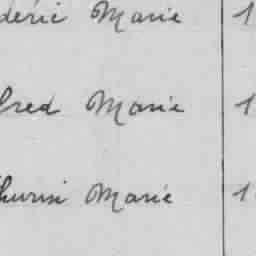 déric Marie 1
fred Marie 1
thurin Marie 1